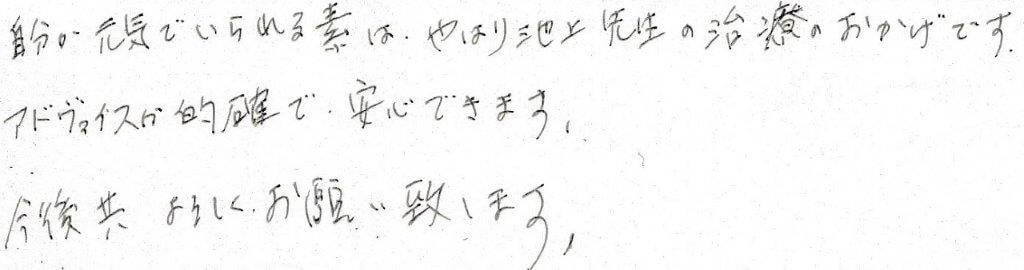 自分が元気でいられる素は、やはり池上先生の治療のおかげです。
アドヴァイスが的確で、安心できます。
今後共よろしくお願い致します。